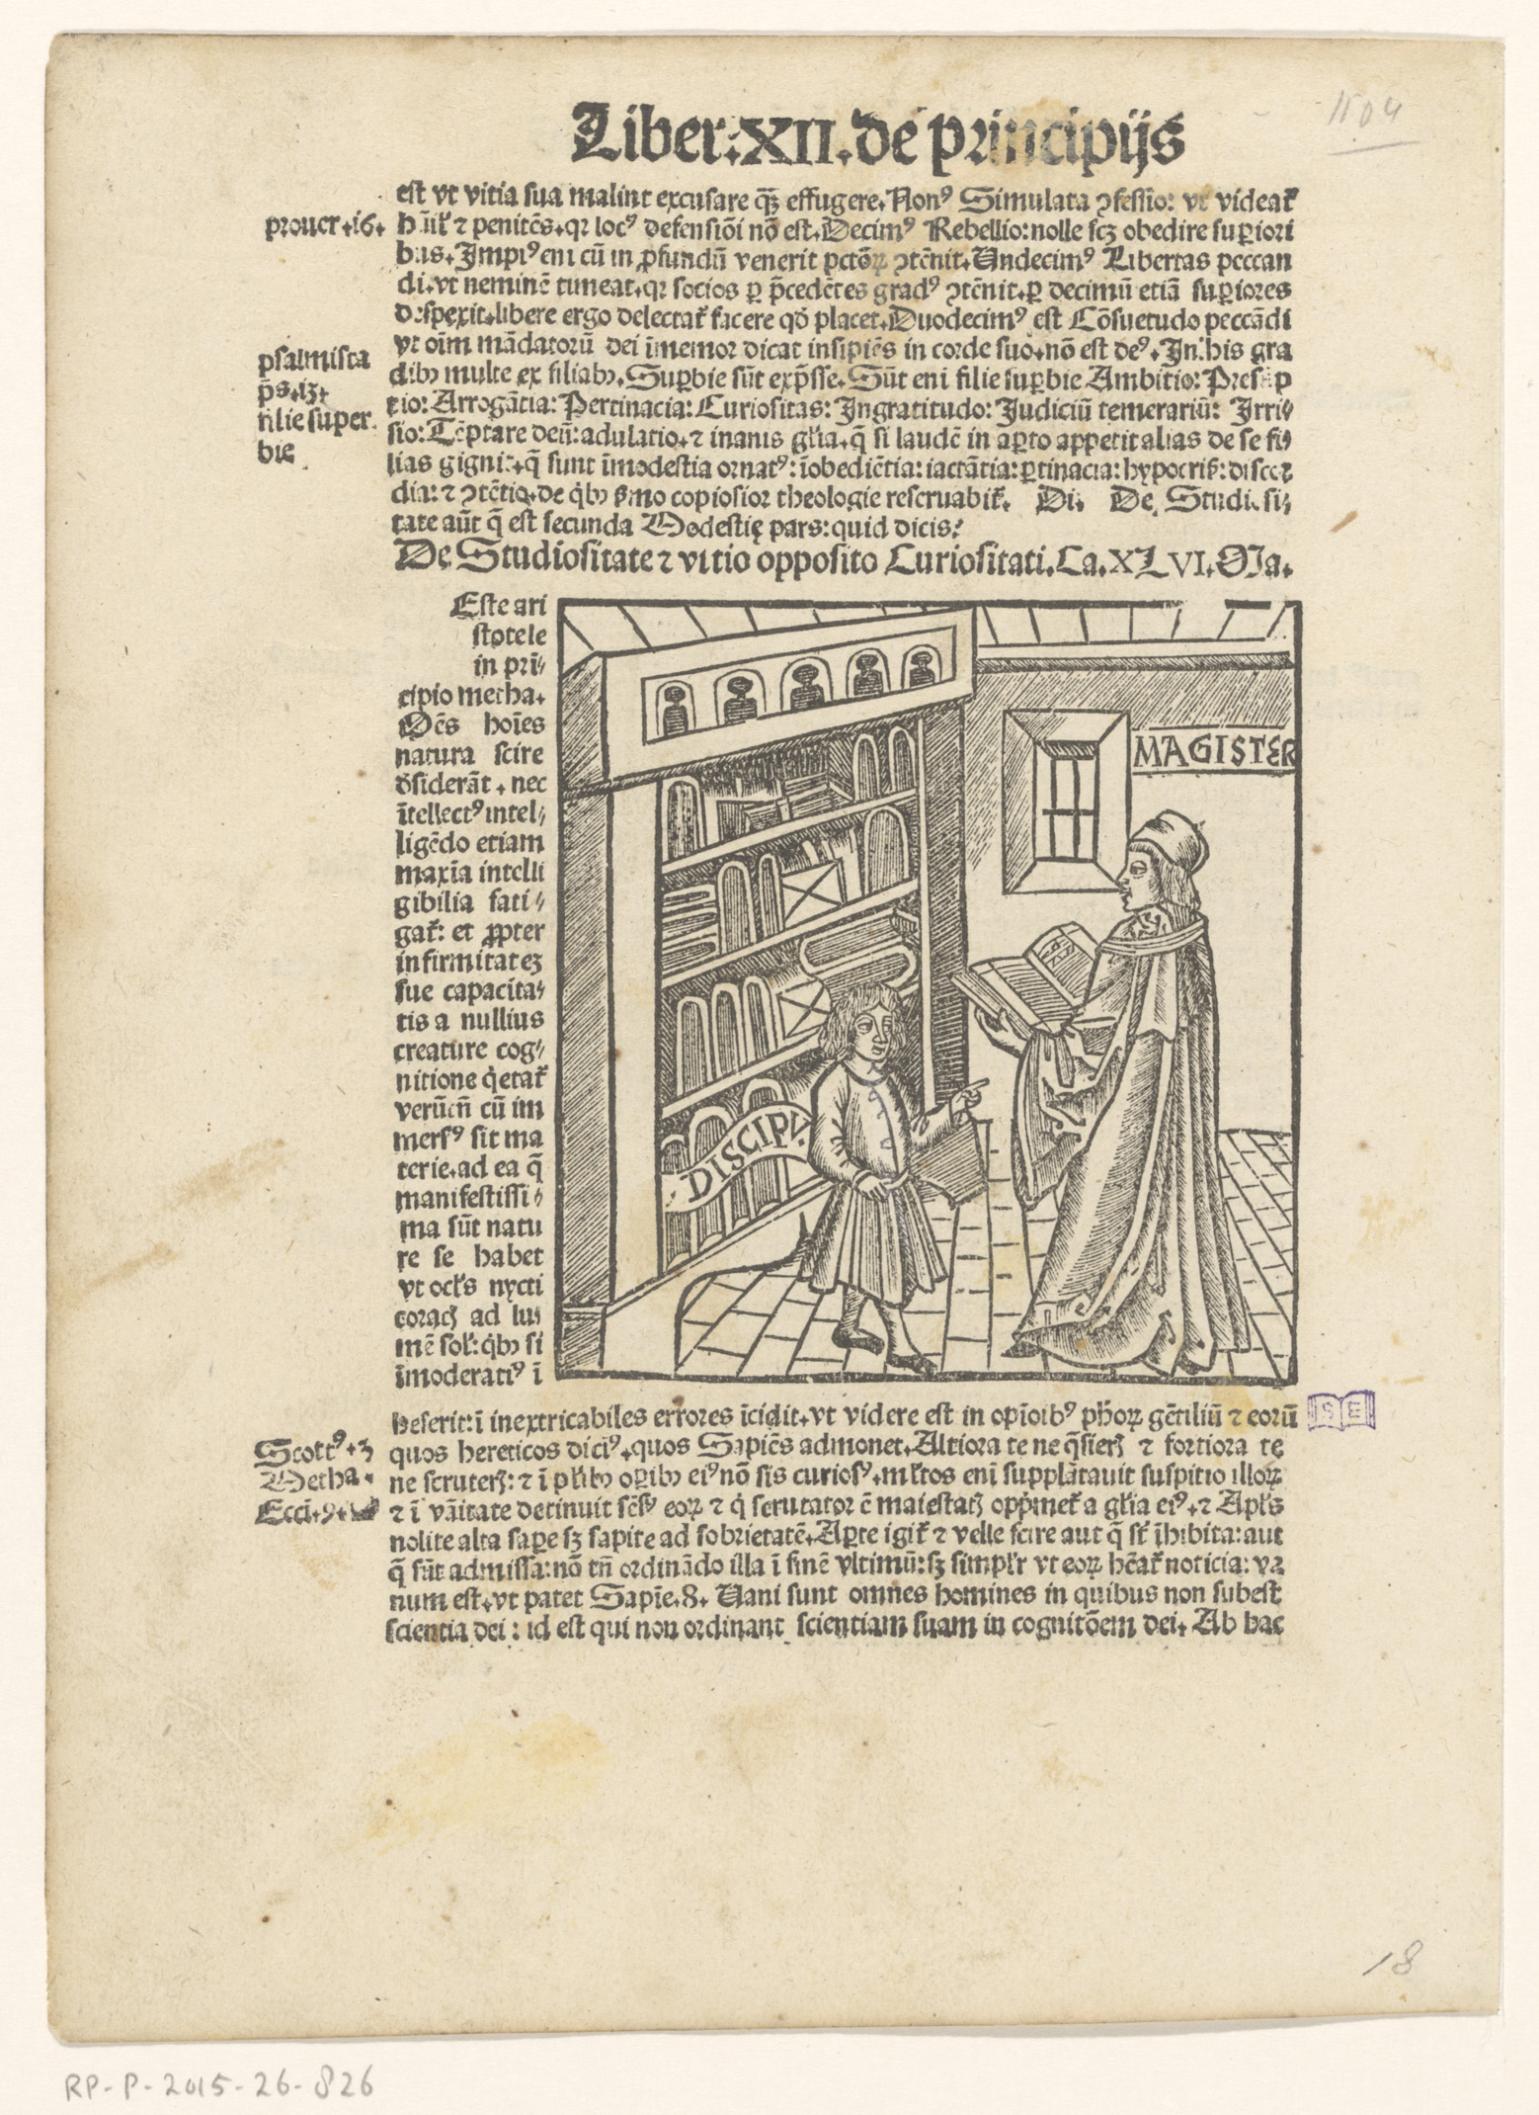 1504
Liber.XII.de principijs
est vt vitia sua malint excusare q̄ȝ effugere.Nonꝰ Simulata ꝯfessio: vt videat᷑
prouer.16. h̄il᷑ ⁊ penitēs.qꝛ locꝰ defensiōi nō est.Decimꝰ Rebellio:nolle scȝ obedire suꝑiori
bus.Impiꝰ eni cū in ꝓfundū venerit pctōꝝ ꝯtēnit.Undecimꝰ Libertas peccan
di.vt neminē timeat.qꝛ socios ꝑ p̄cedētes gradꝰ ꝯtēnit.ꝑ decimū etiā suꝑiores
despexit.libere ergo delectat᷑ facere qd̓ placet.Duodecimꝰ est Cōsuetudo peccādi
vt oīm mādatorū dei īmemor dicat insipiēs in corde suo.nō est deꝰ.In his gra
psalmista
p̄s.13.
filie super
bie
dibꝰ multe ex filiabꝰ.Suꝑbie sūt exp̄sse.Sūt eni filie suꝑbie Ambitio:Presūp
tio:Arrogātia:Pertinacia:Curiositas:Ingratitudo:Judiciū temerariū: Irri⸗
sio:Tēptare deū:adulatio.⁊ inanis gl᷑ia.q̄ si laudē in aꝑto appetit alias de se fi⸗
lias gignit.q̄ sunt īmodestia ornatꝰ:īobediētia:iactātia:ꝑtinacia:hypocris̄:discor
dia:⁊ ꝯtētio.de q̇bꝰ s̄mo copiosior theologie reseruabit᷑. Di. De Studiosi⸗
tate aūt q̄ est secunda Modestię pars:quid dicis?
De Studiositate ⁊ vitio opposito Curiositati.Ca.XLVI.Ma.
Este ari
stotele
in prī⸗
cipio metha.
Oēs hoīes
natura scire
d̓siderāt . nec
ītellectꝰ intel⸗
ligēdo etiam
maxīa intelli
gibilia fati⸗
gat᷑: et ꝓpter
infirmitateȝ
sue capacita⸗
tis a nullius
creature cog⸗
nitione q̇etat᷑
verūtn̄ cū im
mersꝰ sit ma
terie.ad ea q̄
manifestissi⸗
ma sūt natu
re se habet
vt ocl᷑s nycti
coracꝭ ad lu⸗
mē sol᷑:q̇bꝰ si
īmoderatiꝰ ī
MAGISTER
DISCIPV.
heserit:ī inextricabiles errores īcidit.vt videre est in opīoibꝰ ph̄oꝝ gētiliū ⁊ eorū
SE
Scotꝰ.3
Metha.
Ecci.9.
quos hereticos diciꝰ.quos Sapiēs admonet.Altiora te ne q̄sierꝭ ⁊ fortiora te
ne scruterꝭ:⁊ ī pl᷑ibꝰ oꝑibꝰ eiꝰ nō sis curiosꝰ.ml᷑tos eni supplātauit suspitio illoꝝ
⁊ ī vāitate detinuit sēsꝰ eoꝝ ⁊ q̇ scrutator ē maiestatꝭ opp̄met᷑ a gl᷑ia eiꝰ.⁊ Apl᷑s
nolite alta saꝑe sȝ sapite ad sobrietatē.Aꝑte igit᷑ ⁊ velle scire aut q̄ st᷑ īhibita:aut
q̄ sūt admissa:nō tn̄ ordinādo illa ī finē vltimū:sȝ simpl᷑r vt eoꝝ hēat᷑ noticia: va
num est.vt patet Sapīe.8. Uani sunt omnes homines in quibus non subest
scientia dei : id est qui non ordinant scientiam suam in cognitōem dei. Ab hac
18
RP-P-2015-26-826